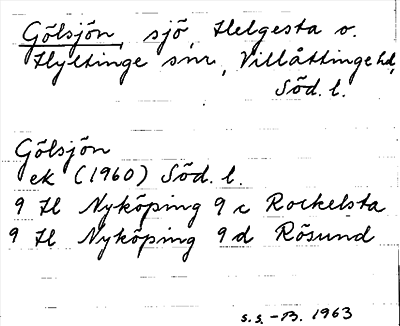 Gölsjön, sjö, Helgesta o.
Hyltinge snr, Villåttinge hd,
Söd. l.
Gölsjön
ek (1960) Söd. l.
9 H Nyköping 9 c Rockelsta
9 H Nyköping 9 d Rösund
s.s. - B. 1963